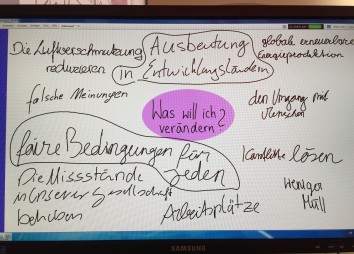 Die Luftverschmutzung
reduzieren
Ausbeutung
in Entwicklungsländern
globale erneuerbare
Energieproduktion
falsche Meinungen
Was will ich
verändern?
den Umgang mit
Menschen
faire Bedingungen für
jeden
Konflikte lösen
Die Missstände
in unserer Gesellschaft
beheben
Arbeitsplätze
weniger
Müll
SAMSUNG